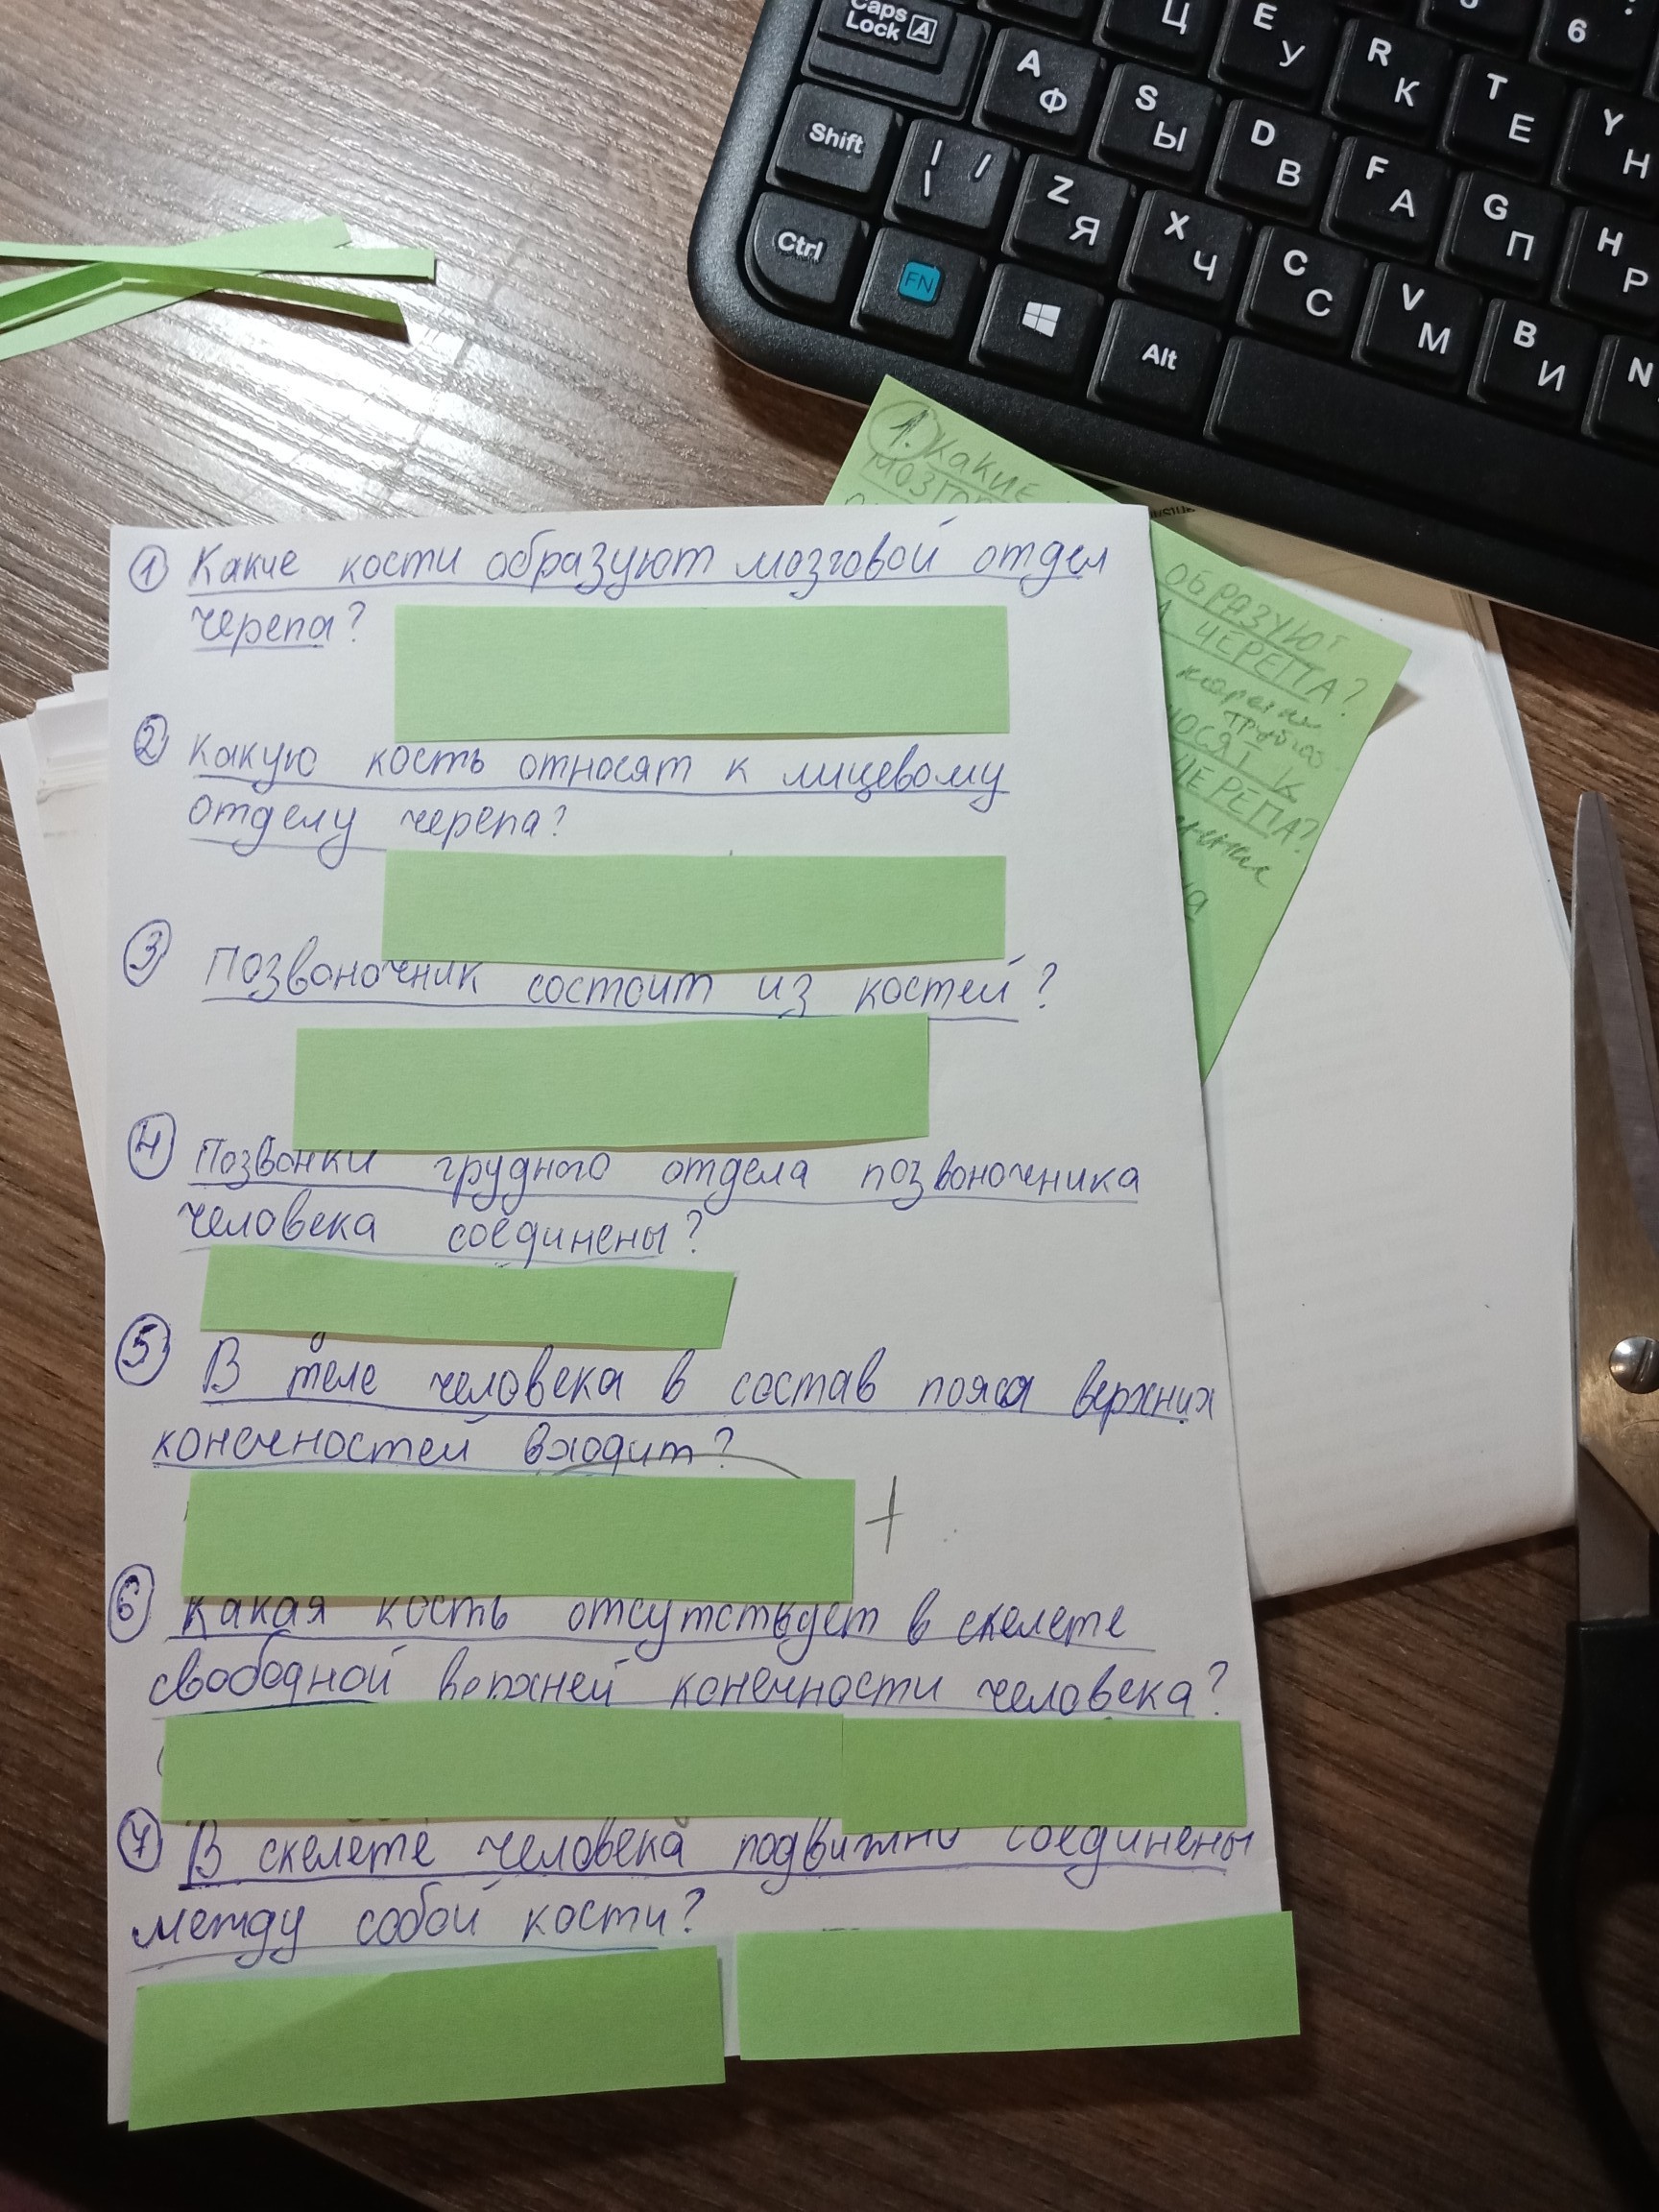 Caps
Lock A
Ц
E У
R К
T Е
Y Н
6
Shift
A Ф
S Ы
D В
F А
G П
H Р
Ctrl
FN
Z Я
X Ч
C С
V М
B И
N
Alt
1. Какие
ОБРАЗУЮТ
ЧЕРЕПА?
НОСЯТ К
ЧЕРЕПА?
1 Какие кости образуют мозговой отдел
черепа?
2 Какую кость относят к лицевому
отделу черепа?
3 Позвоночник состоит из костей?
4 Позвонки грудного отдела позвоночника
человека соединены?
5 В теле человека в состав пояса верхних
конечностей входит?
+
6 Какая кость отсутствует в скелете
свободной верхней конечности человека?
7 В скелете человека подвижно соединены
между собой кости?